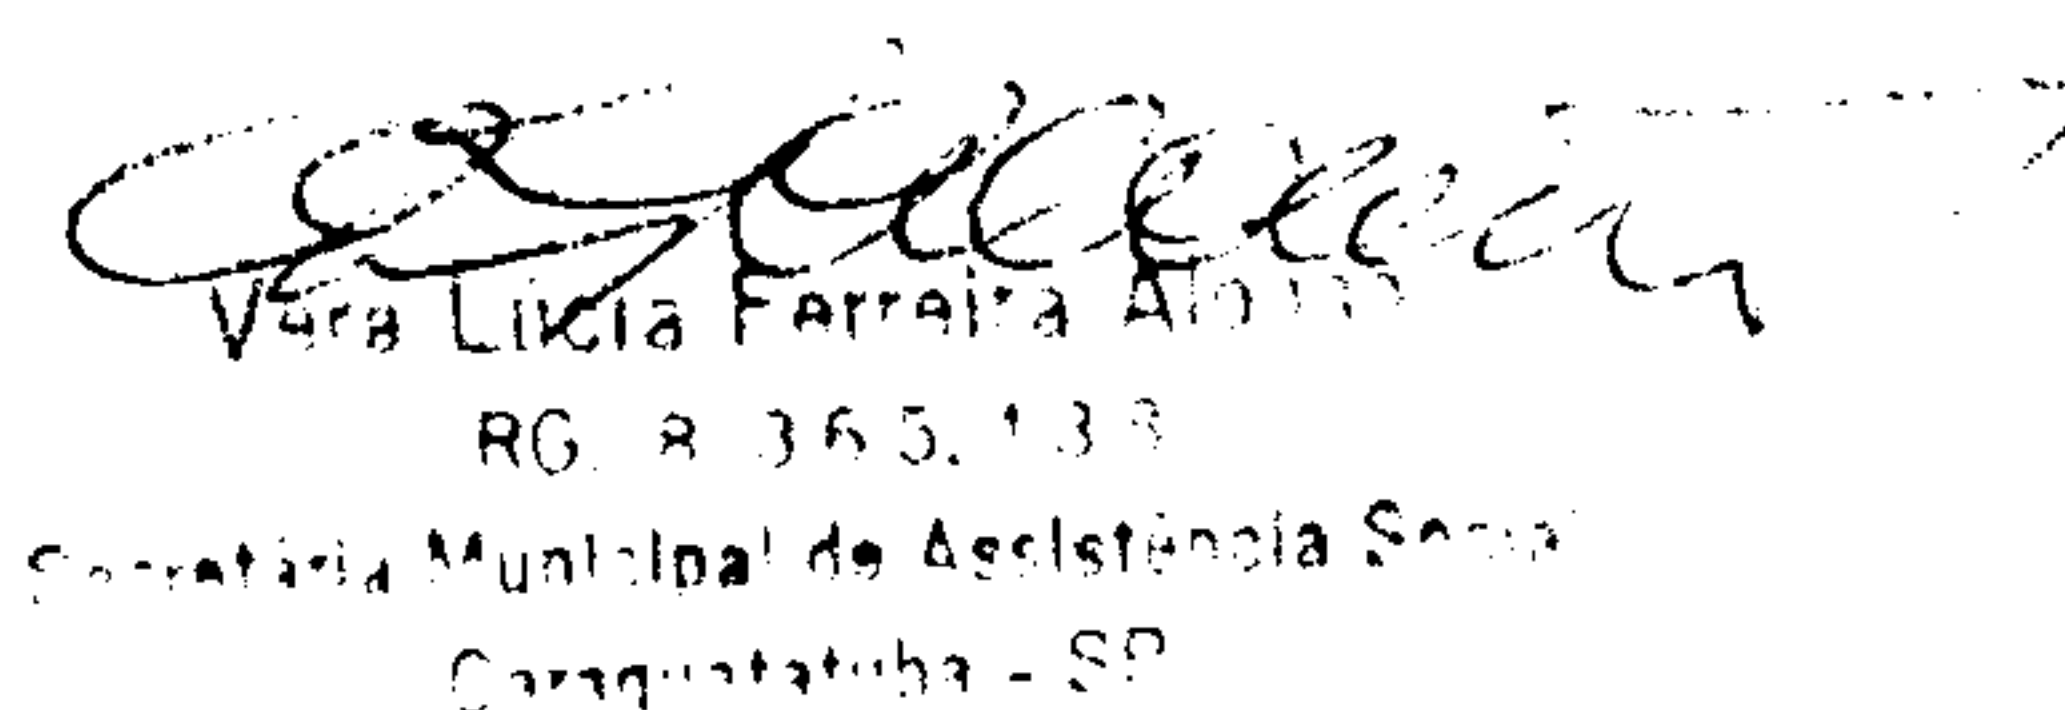 Vera Lucia Ferreira
RG. 8.365.13
Secretária Municipal de Assistência Social
Caraguatatuba - SP